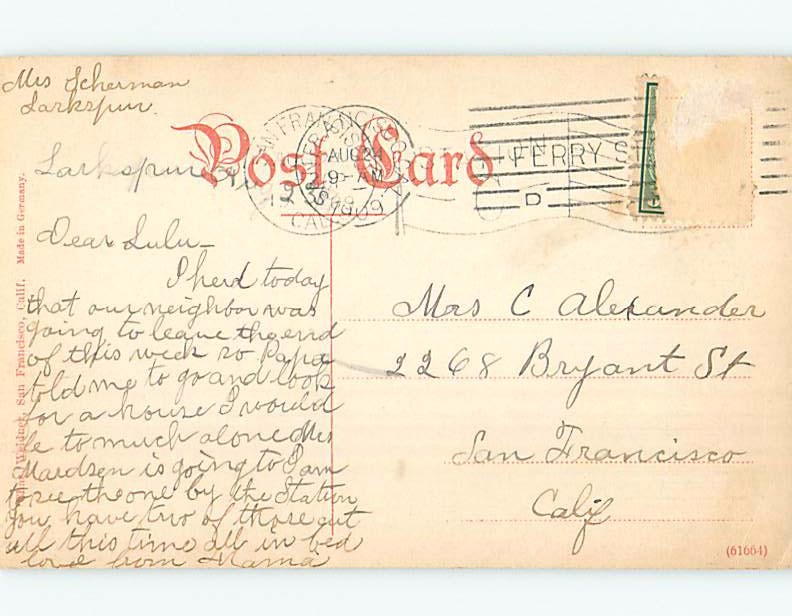 Mrs Scherman
Larkspur
Post Card
SAN FRANCISCO
AUG 24
9- AM
1909
CAL
FERRY S
D
Larkspur
Dear Lulu_
I herd today
that our neighbor was
going to leave the end
of this week so Papa
told me to go and look
for a house I would
be to much alone Mrs
Maedsen is going to I am
to see the one by the Station
you have two of those out
all this time all in bed
love from Mama
Mrs C Alexander
2268 Bryant St
San Francisco
Calif
Weidner, San Francisco, Calif. Made in Germany.
(61664)